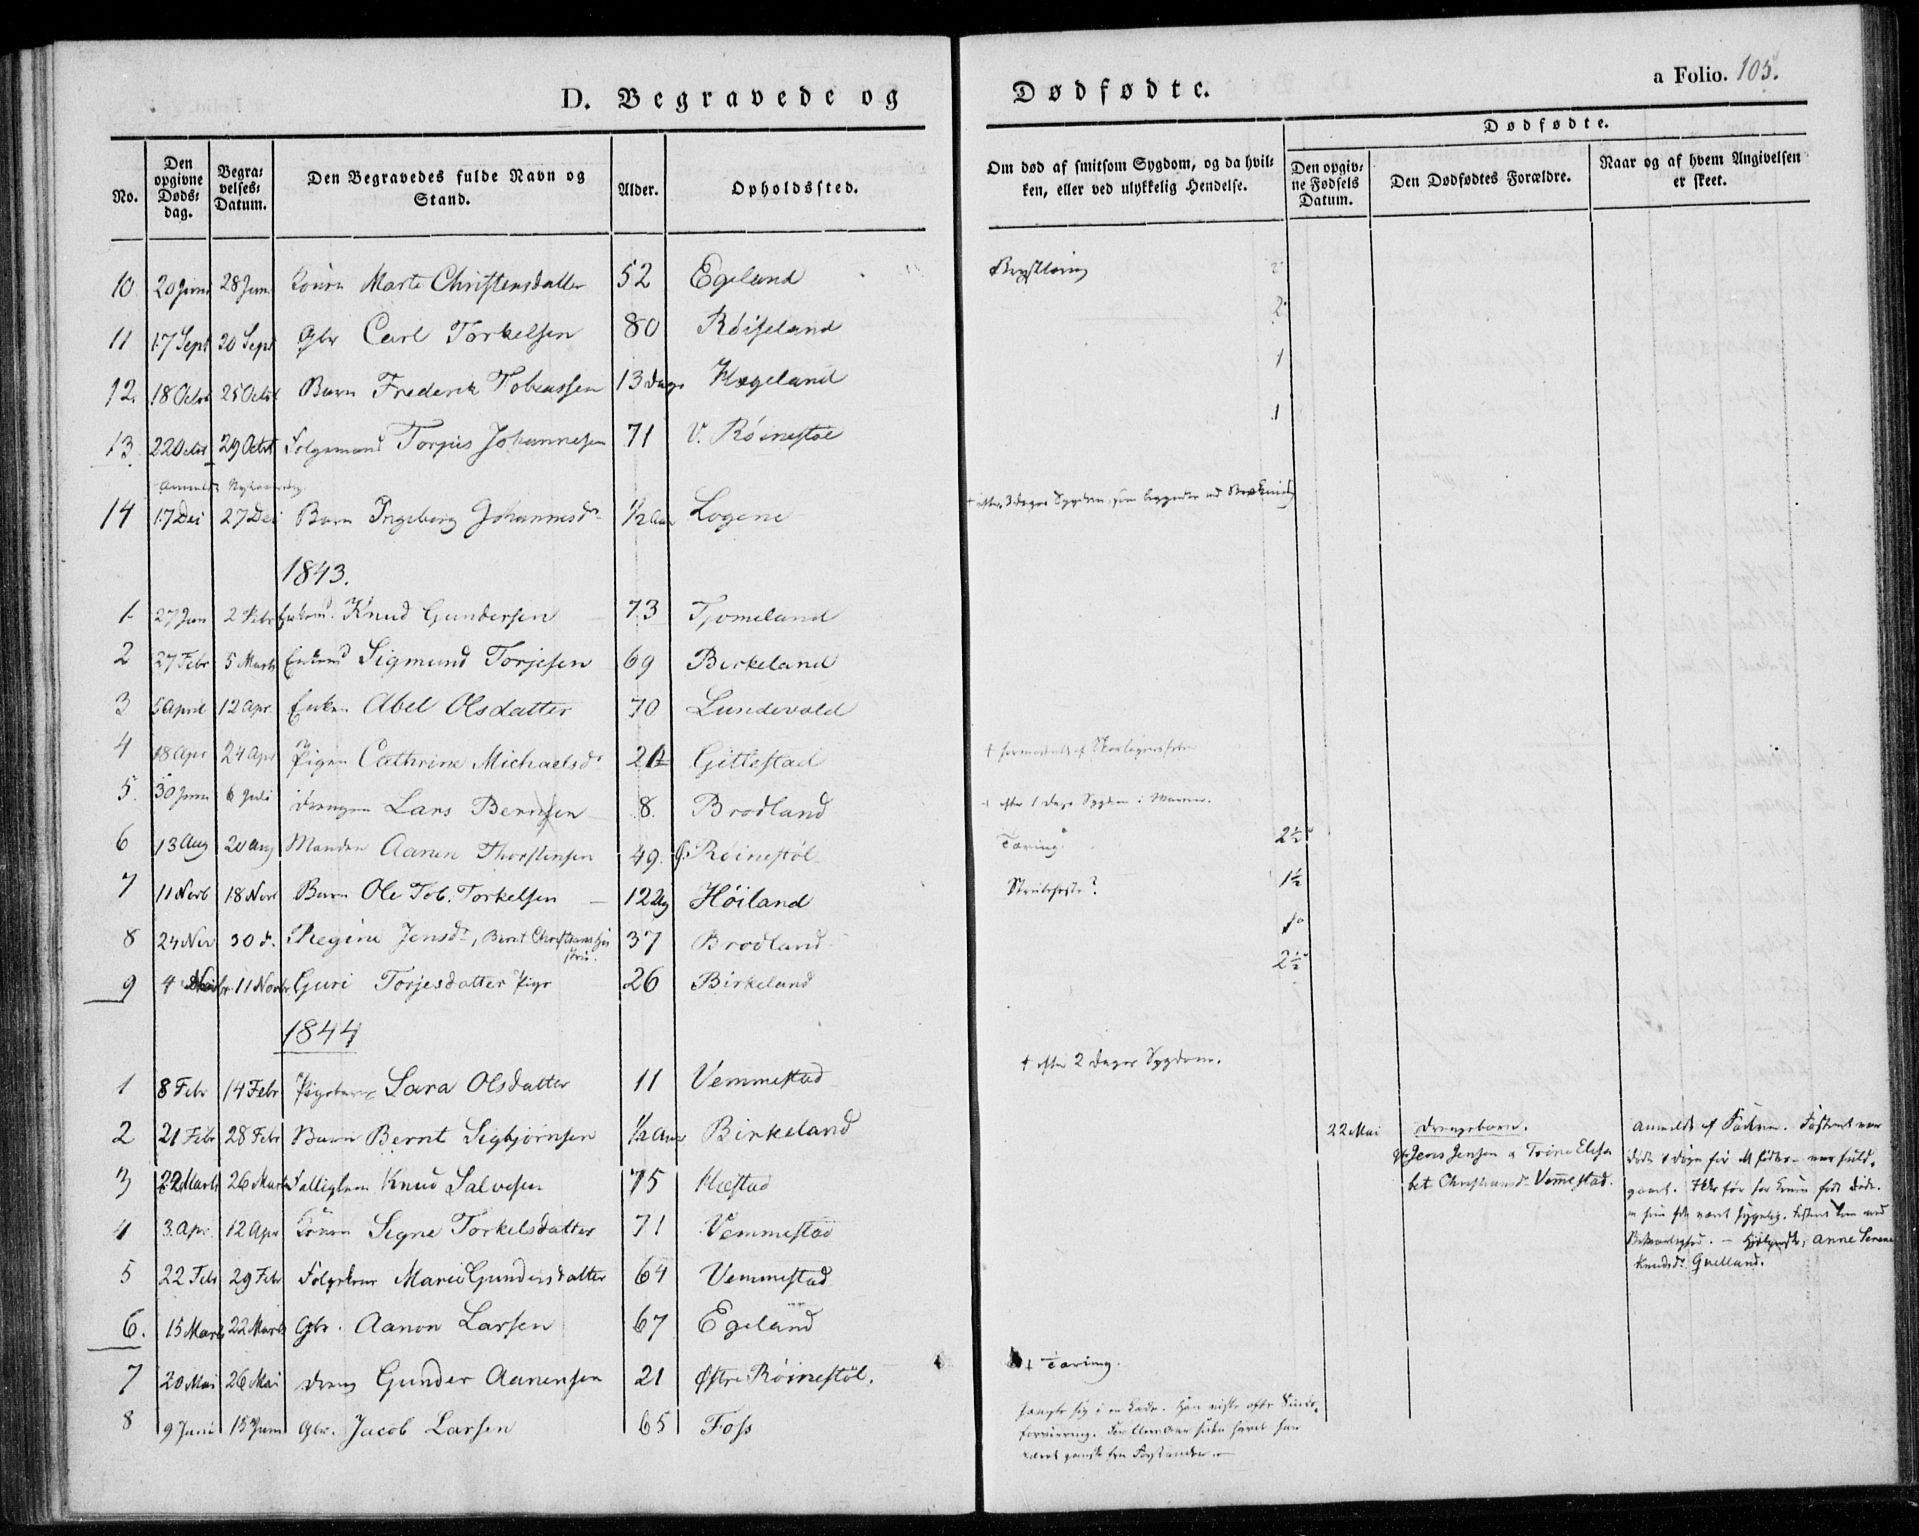 D. Begravede og
Dødfødte.
a Folio. 105.
No.
Den opgivne Døds-dag.
Begravelses-Datum.
Den Begravedes fulde Navn og Stand.
Alder.
Opholdssted.
Om død af smitsom Sygdom, og da hvilken, eller ved ulykkelig Hendelse.
Dødfødte.
Den opgivne Fødsels Datum.
Den Dødfødtes Forældre.
Naar og af hvem Angivelsen er skeet.
10 20 Juni 28 Juni Konen Marte Christensdatter 52 Egeland
11 17 Sept 20 Sept Gbr Carl Torkelsen 80 Røiseland 2
12. 18 Octbr 25 Octbr Barn Frederik Tobiassen 13 Dage Hægeland 1
13 22 Octbr 29 Octbr Folgemand Torjus Johannesen 71 V. Røinestøl 1
14 17 Dec 27 Dec Barn Ingeborg Johannesdr ½ Aar Logene + efter 3 dages Sygdom, som begyndte med
1843.
1 27 Jan 2 Febr Knud Gundersen 73 Tjomeland
2 27 Febr 5 Marts Enkemd Sigmund Torjesen 69 Birkeland
3 5 April 12 Apr Enken Abel Olsdatter 70 Lundevold
4 18 Apr 24 Apr Pigen Cathrine Michaelsdr Gitlestad + formodentl. af Skarlagensfeber
5. 30 Juni 6 Juli Drengen Lars Berntsen 8 Brodland + efter 1 Dags Sygdom i
6 13 Aug 20 Aug Manden Aanen Thorstensen 49. Ø. Røinestøl Tæring 2½
7 11 Novb 18 Nov Barn Ole Tob. Torkelsen 12 Høiland Strubehoste? 1½
8 24 Nov 30 d. Regine Jensdr, Bernt Christians Hustru 37 Brodland
9 4 11 Novbr Guri Torjesdatter Pige 26 Birkeland 2½
1844
1 8 Febr 14 Febr Pigebarn Sara Olsdatter 11 Vemmestad + efter 2 Dages Sygdom.
2 21 Febr 28 Febr Barn Bernt Sigbjørnsen ½ Aar Birkeland
22 Mai Drengebarn.
Jens Jensen & Trine Elisabet Christiansdr Vemmestad.
Anmeldt af Faderen. Fosteret var
død 1 Døgn før M føder - var fuld-
Anne Serene
Knudsdr Gvelland.
3 22 Marts 26 Marts Knud Salvesen 75 Hæstad
4 3. Apr. 12 Apr Konen Signe Torkelsdatter 71 Vemmestad
5 22 Feb 29 Feb Folgekone Marie Gundersdatter 64 Vemmestad
6. 15 Marts 22 Marts Gbr. Aanon Larsen 67 Egeland
7 20 Mai 26 Mai Dreng Gunder Aanensen 21 Østre Røinestøl. + Tæring.
8 9 Juni 15 Juni Gbr. Jacob Larsen 65 Foss
hængte sig i en Lade. Han viste ofte Sinds-
forvirring.